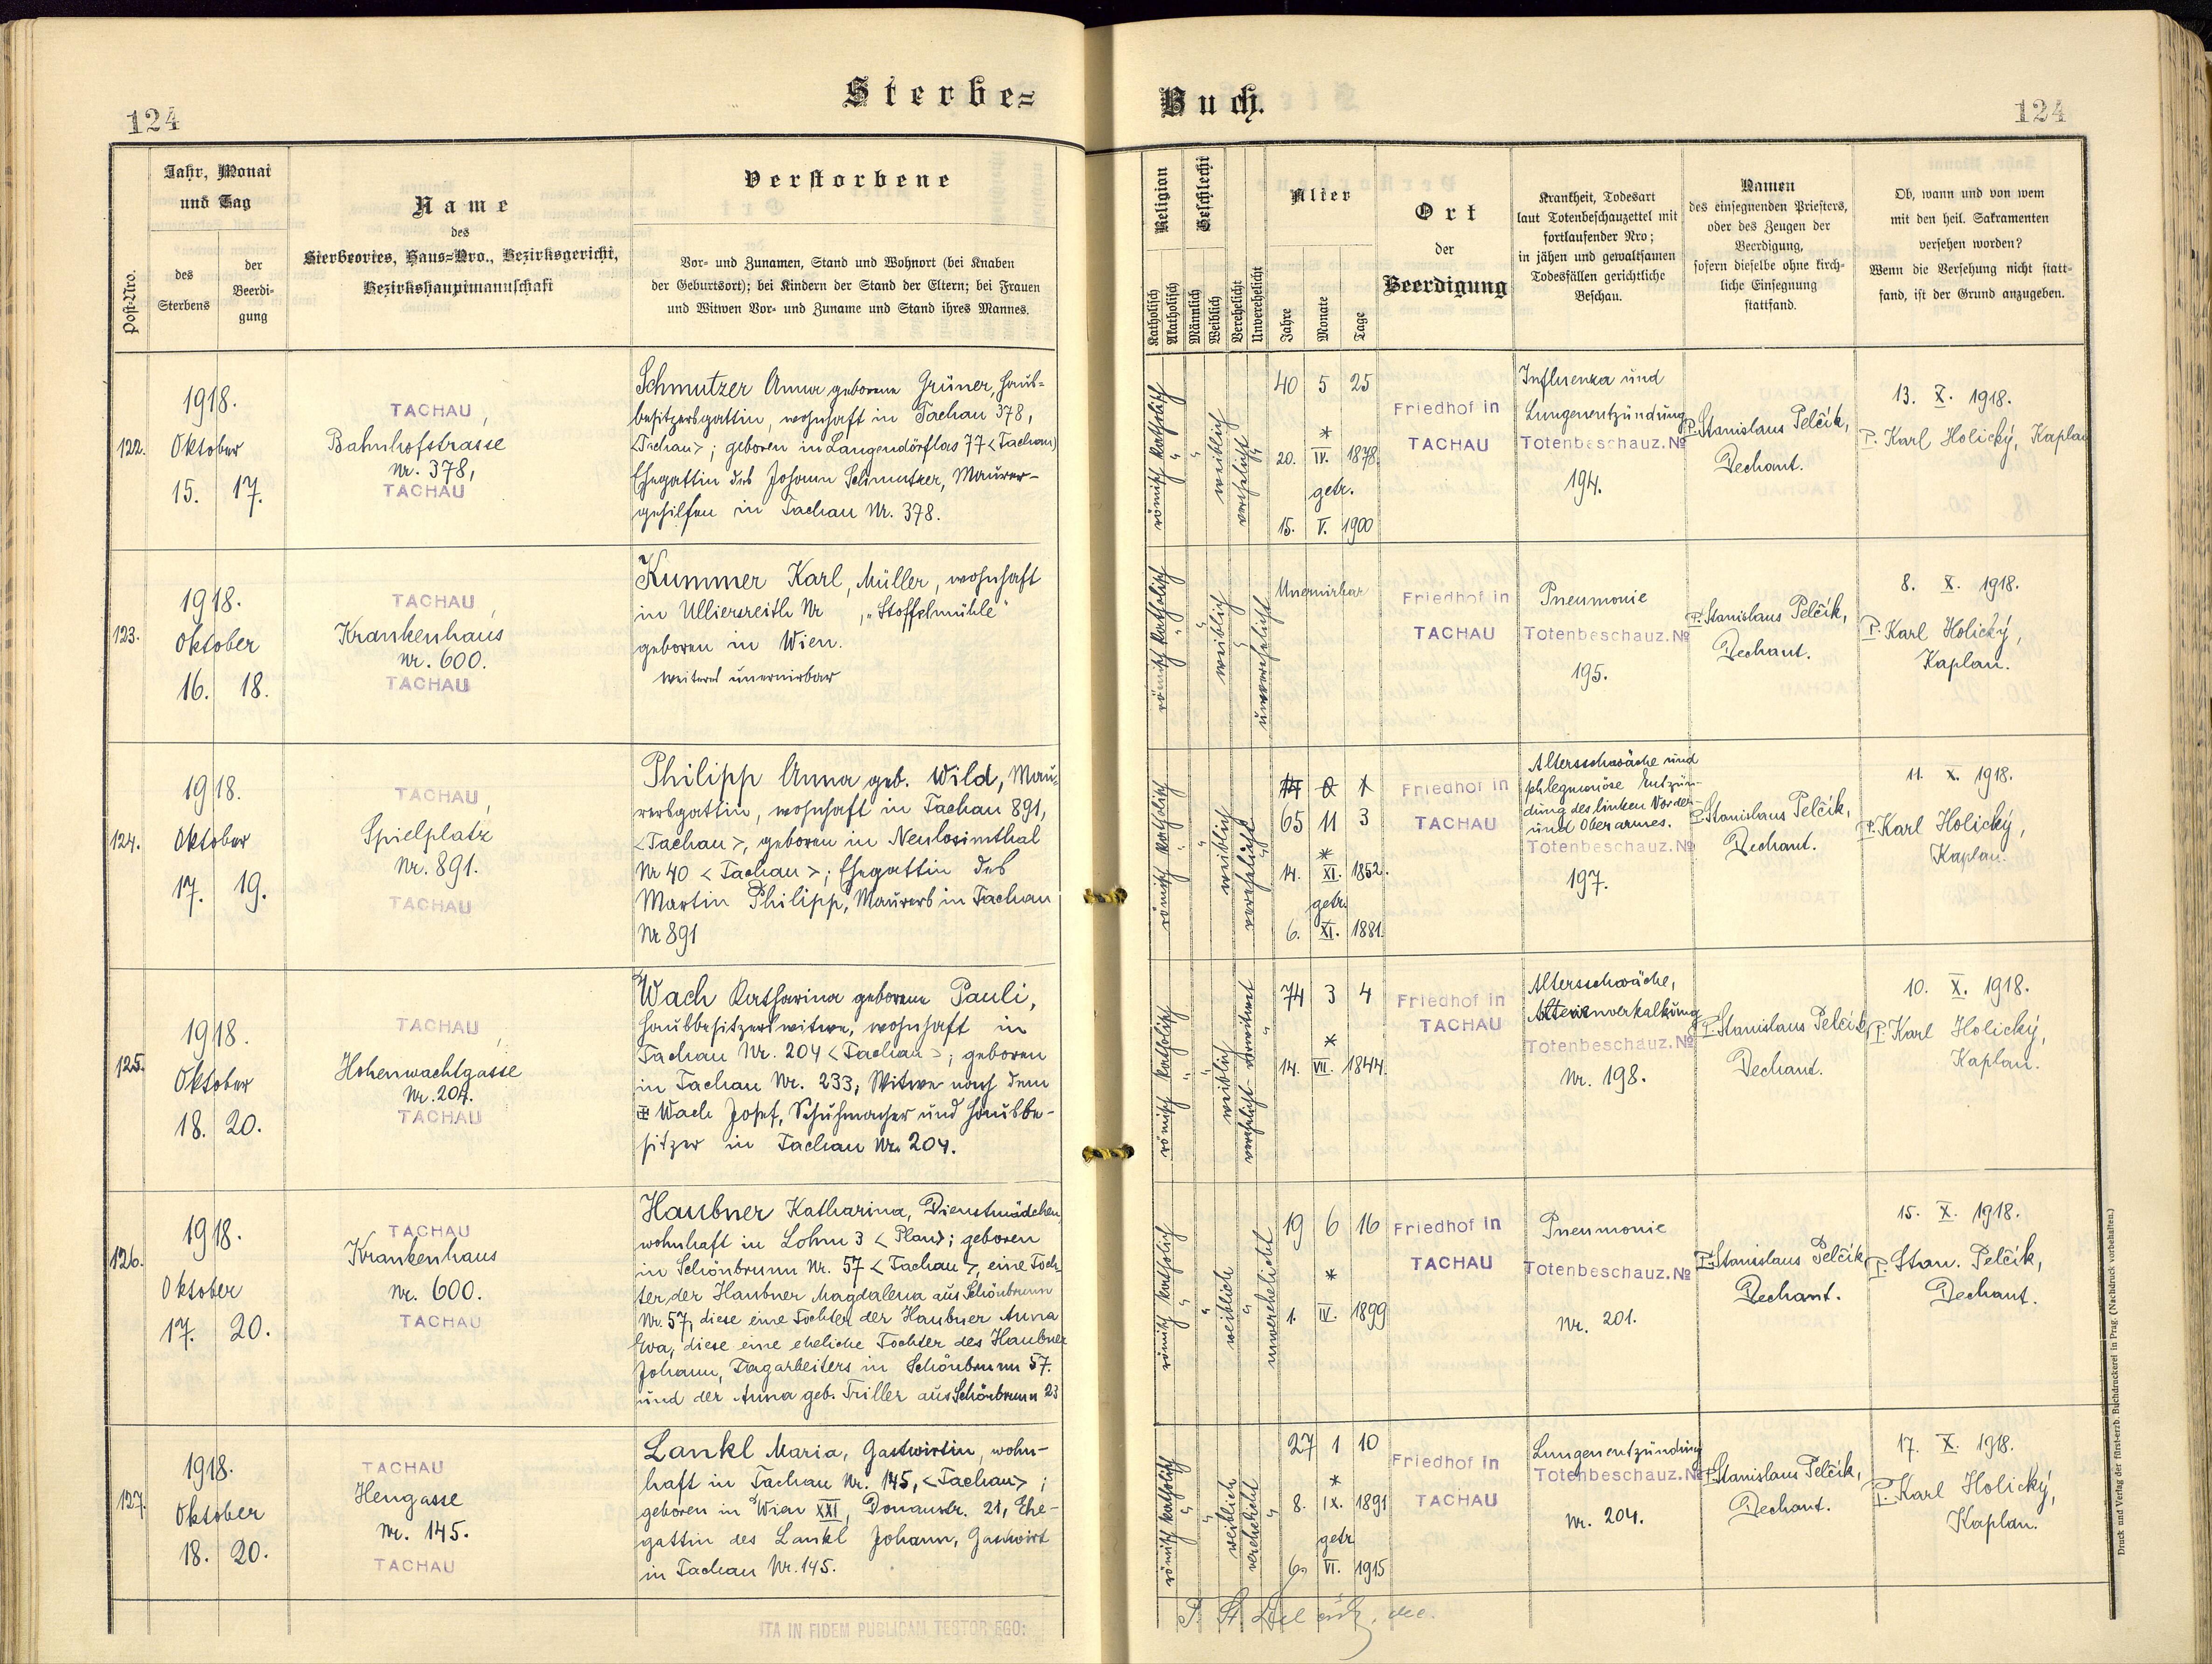 124
Sterbe=
Jahr, Monat
und Tag
Name
des
Sterbeortes, Haus=Nro., Bezirksgericht,
Bezirkshauptmannschaft
Verstorbene
Post-Nro.
des
Sterbens
der
Beerdi-
gung
Vor- und Zunamen, Stand und Wohnort (bei Knaben
der Geburtsort); bei Kindern der Stand der Eltern; bei Frauen
und Witwen Vor- und Zuname und Stand ihres Mannes.
122.
1918.
Oktober
15. 17.
TACHAU,
Bahnhofstrasse
Nr. 378,
TACHAU
Schmutzer Anna geborene Grüner, Haus-
besitzersgattin, wohnhaft in Tachau 378,
<Tachau>; geboren in Langendörflas 77 <Tachau>
Ehegattin des Johann Schmutzer, Maurer-
gehilfen in Tachau Nr. 378.
123.
1918.
Oktober
16. 18.
TACHAU,
Krankenhaus
Nr. 600.
TACHAU
Kummer Karl, Müller, wohnhaft
in Ulliersreith Nr , "Stoffelmühle"
geboren in Wien.
weiteres unernirbar
124.
1918.
Oktober
17. 19.
TACHAU,
Spielplatz
Nr. 891.
TACHAU
Philipp Anna geb. Wild, Mau-
rersgattin, wohnhaft in Tachau 891,
<Tachau>, geboren in Neulosimthal
Nr 40 <Tachau>; Ehegattin des
Martin Philipp, Maurers in Tachau
Nr 891
125.
1918.
Oktober
18. 20.
TACHAU,
Hohenwachtgasse
Nr. 204.
TACHAU
Wach Katharina geborene Pauli,
Hausbesitzerswitwe, wohnhaft in
Tachau Nr. 204 <Tachau>; geboren
in Tachau Nr. 233; Witwe nach dem
Wach Josef, Schuhmacher und Hausbe-
sitzer in Tachau Nr. 204.
126.
1918.
Oktober
17. 20.
TACHAU
Krankenhaus
Nr. 600.
TACHAU
Haubner Katharina, Dienstmädchen,
wohnhaft in Lohm 3 <Plan>; geboren
in Schönbrunn Nr. 57 <Tachau>, eine Toch-
ter der Haubner Magdalena aus Schönbrunn
Nr. 57, diese eine Tochter der Haubner Anna
Eva, diese eine eheliche Tochter des Haubner
Johann, Tagarbeiters in Schönbrunn 57.
und der Anna geb. Triller aus Schönbrunn 23
127.
1918.
Oktober
18. 20.
TACHAU
Hengasse
Nr. 145.
TACHAU
Lankl Maria, Gastwirtin, wohn-
haft in Tachau Nr. 145, <Tachau>;
geboren in Wien XXI, Donaustr. 21, Ehe-
gattin des Lankl Johann, Gastwirt
in Tachau Nr. 145.
ITA IN FIDEM PUBLICAM TESTOR EGO:
Buch.
124
Religion
Geschlecht
Katholisch
Akatholisch
Männlich
Weiblich
Verehelicht
Unverehelicht
Alter
Jahre
Monate
Tage
Ort
der
Beerdigung
Krankheit, Todesart
laut Totenbeschauzettel mit
fortlaufender Nro;
in jähen und gewaltsamen
Todesfällen gerichtliche
Beschau.
Namen
des einsegnenden Priesters,
oder des Zeugen der
Beerdigung,
sofern dieselbe ohne kirch-
liche Einsegnung
stattfand.
Ob, wann und von wem
mit den heil. Sakramenten
versehen worden?
Wenn die Versehung nicht statt-
fand, ist der Grund anzugeben.
römisch katholisch
weiblich
verehelicht
40 5 25
*
20. IV. 1878.
getr.
15. V. 1900
Friedhof in
TACHAU
Influenza und
Lungenentzündung
Totenbeschauz. No
194.
P. Stanislaus Pelčik,
Dechant.
13. X. 1918.
P. Karl Holický, Kaplan
römisch katholisch
weiblich
unverehelicht
Unernirbar
Friedhof in
TACHAU
Pneumonie
Totenbeschauz. No
195.
P. Stanislaus Pelčik,
Dechant.
8. X. 1918.
P. Karl Holický,
Kaplan.
römisch katholisch
weiblich
verehelicht
65 11 3
*
14. XI. 1852.
getr.
6. XI. 1881.
Friedhof in
TACHAU
Altersschwäche und
phlegmoniöse Entzün-
dung des linken Vorder-
und Oberarmes.
Totenbeschauz. No
197.
P. Stanislaus Pelčik,
Dechant.
11. X. 1918.
P. Karl Holický,
Kaplan.
römisch katholisch
weiblich
verehelicht-verwitwet
74 3 4
*
14. VII. 1844.
Friedhof in
TACHAU
Altersschwäche,
Arterienverkalkung
Totenbeschauz. No
Nr. 198.
P. Stanislaus Pelčik,
Dechant.
10. X. 1918.
P. Karl Holický,
Kaplan.
römisch katholisch
weiblich
unverehelicht
19 6 16
*
1. IV. 1899
Friedhof in
TACHAU
Pneumonie
Totenbeschauz. No
Nr. 201.
P. Stanislaus Pelčik,
Dechant.
15. X. 1918.
P. Stan. Pelčik,
Dechant.
römisch katholisch
weiblich
verehelicht
27 1 10
*
8. IX. 1891
getr
6. VI. 1915
Friedhof in
TACHAU
Lungenentzündung
Totenbeschauz. No
Nr. 204.
P. Stanislaus Pelčik,
Dechant.
17. X. 1918.
P. Karl Holický,
Kaplan.
Druck und Verlag der fürst-erzb. Buchdruckerei in Prag. (Nachdruck vorbehalten.)